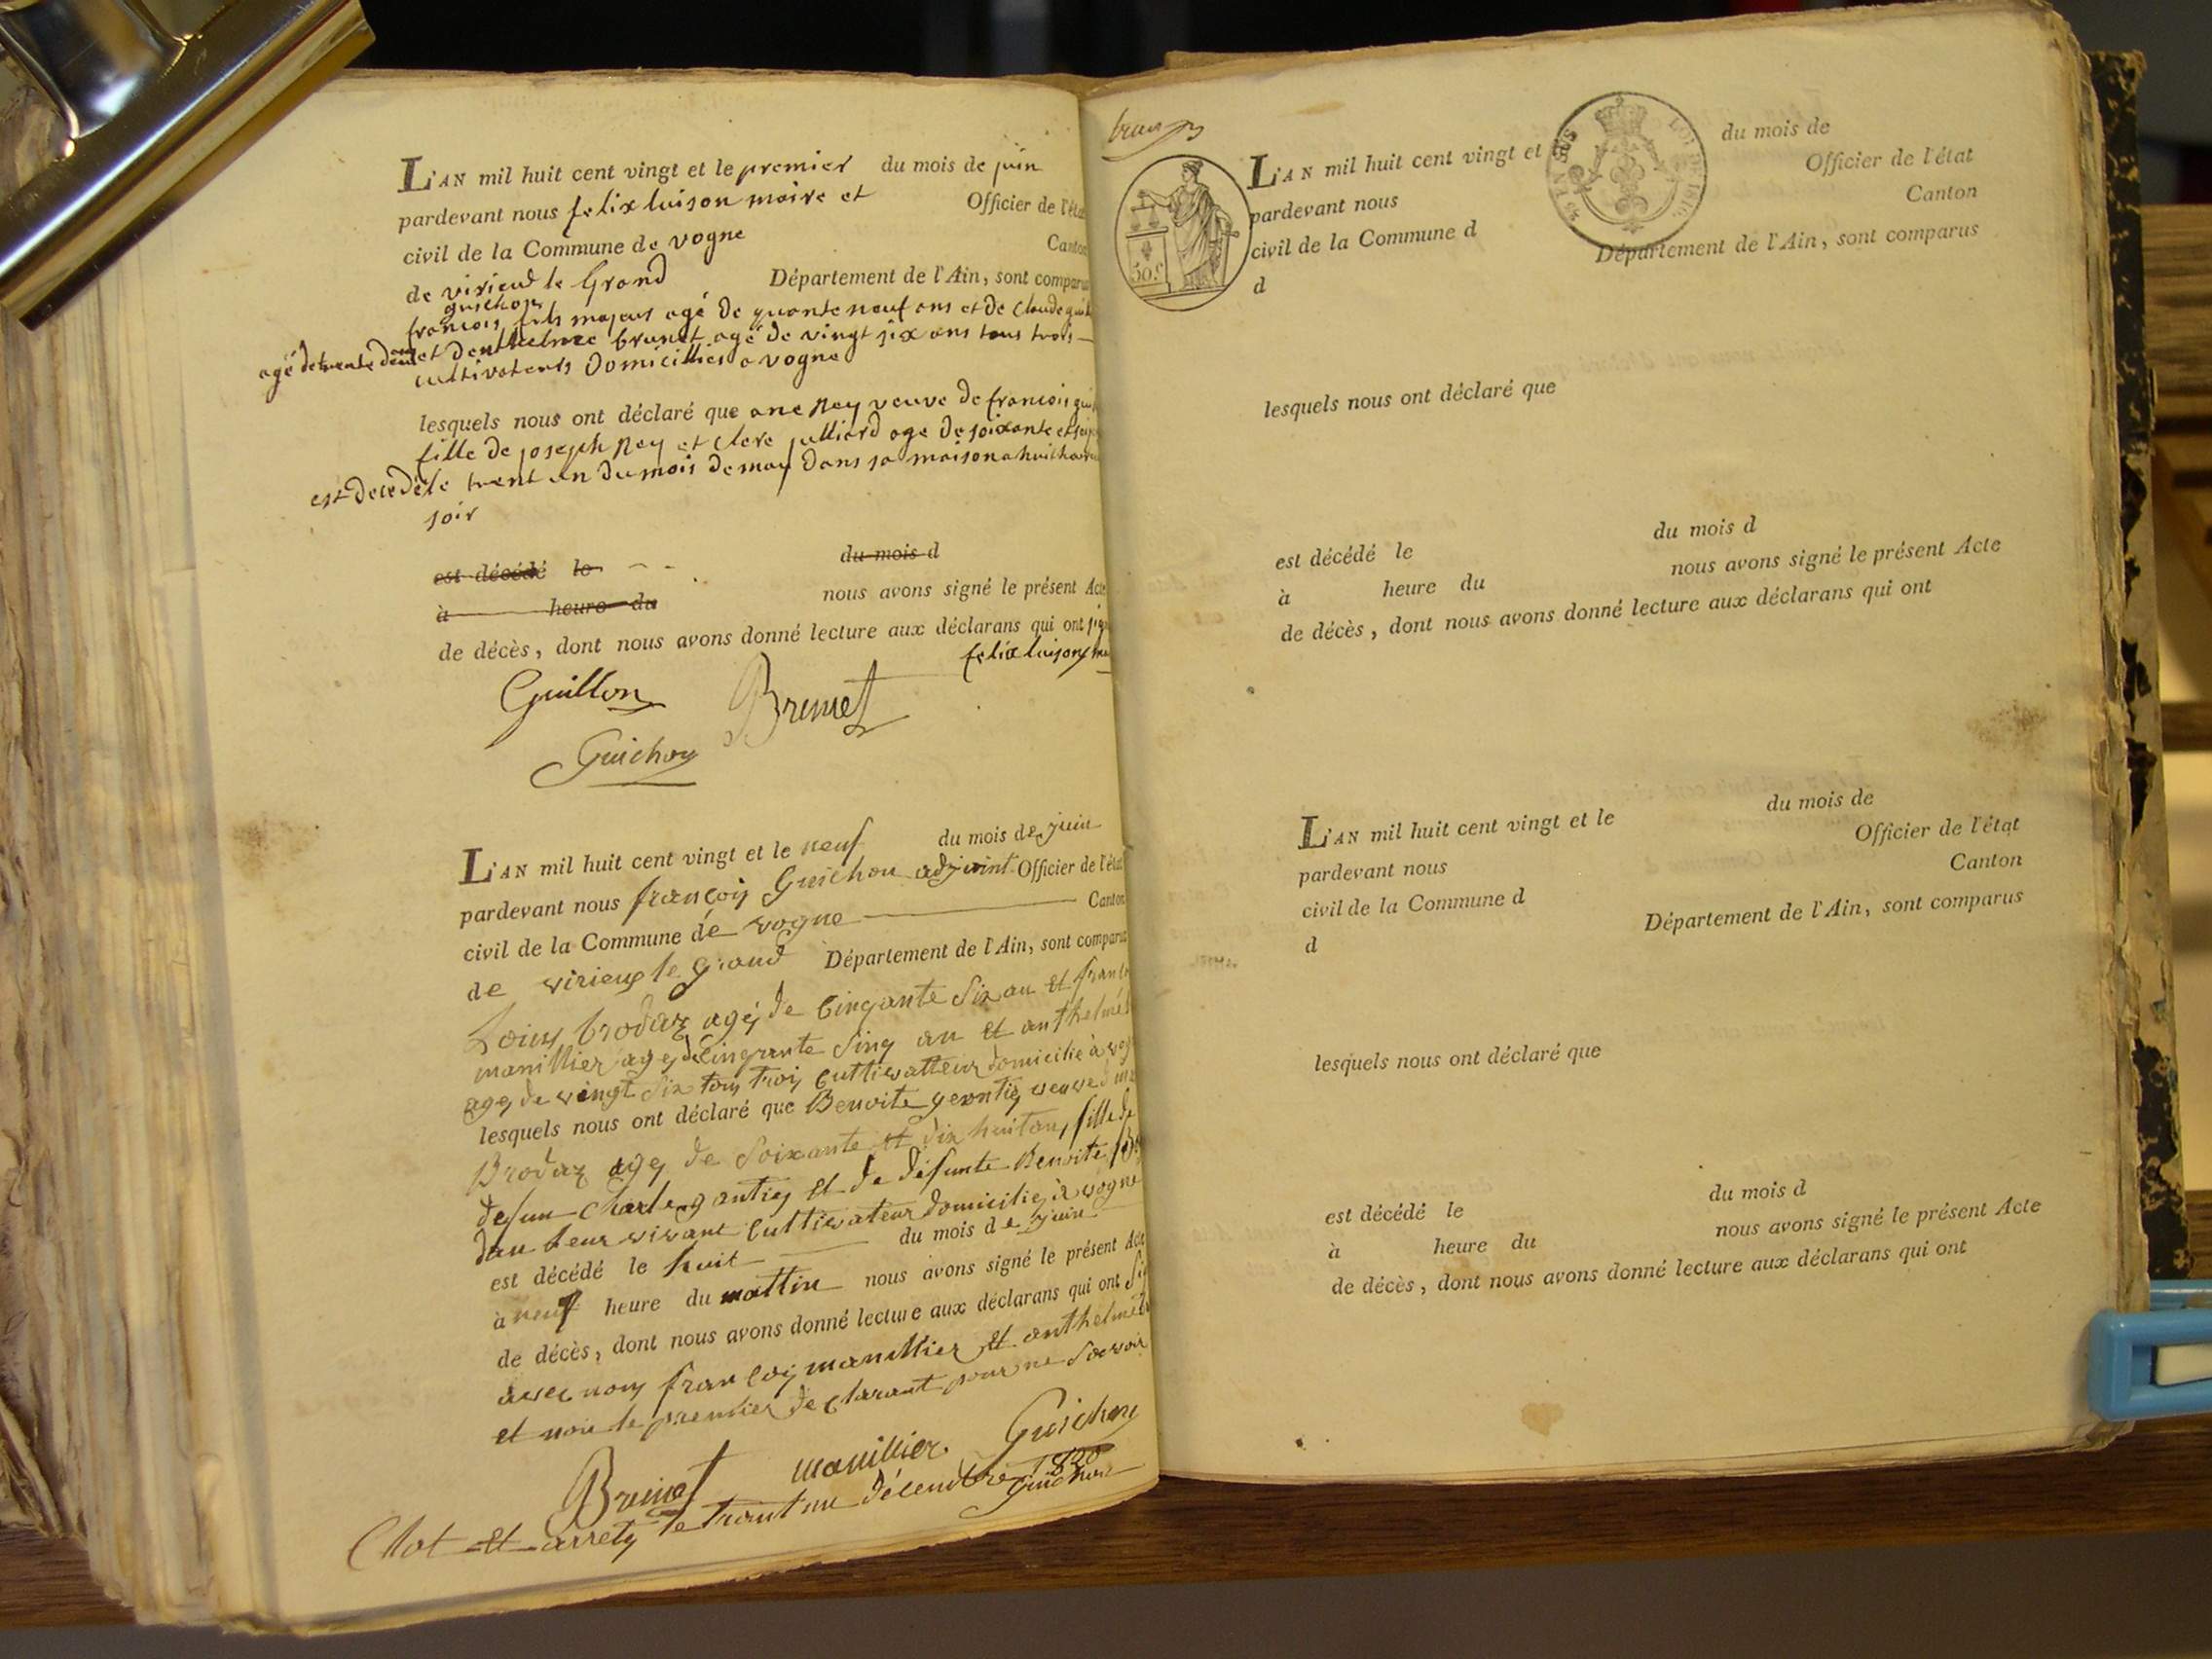 L'AN mil huit cent vingt et le premier du mois de juin
pardevant nous felix luison maire et Officier de l'éta
civil de la Commune de vogne Canton
de virieud le Grand Département de l'Ain, sont comparus
guichon
francois fils majeur agé de quante neuf ans et de Claude
agé de trente deux ans et denthelme brunet agé de vingt six ans tous trois
cultivateurs Domicilliés a vogne
lesquels nous ont déclaré que ane Rey veuve de francois
fille de joseph Rey et clere julliard age de soixante et
est decedé le trent un du mois de may dans sa maison a huit
soir
est décédé le du mois d
à heure du nous avons signé le présent Acte
de décès, dont nous avons donné lecture aux déclarans qui ont
felix luison
Guillon Brunet
Guichon
L'AN mil huit cent vingt et le neuf du mois de juin
pardevant nous françois Guichon adjoint Officier de l'état
civil de la Commune de vogne Canton
de virieu le grand Département de l'Ain, sont comparus
Louis brodaz agé de Cinqante Six an et
manillier agé de Cinqrante Sinq an et anthelme
agé de vingt Six tous trois Cultivatteur domicilié à
lesquels nous ont déclaré que Benoite veuve
Brodaz agé de Soixante et dix huit an, fille de
defun Charle gantiey et de défunte Benoite
dan leur vivant Cultivateur domicilié à vogne
est décédé le huit du mois de juin
à neuf heure du mattin nous avons signé le présent Acte
de décès, dont nous avons donné lecture aux déclarans qui ont
avec nous françois manillier et anthelme
et non le premier declarant pour ne Savoir
Brunet manillier Guichon
Clot et arreté le trant un décembre 1820
Guichon
L'AN mil huit cent vingt et du mois de
pardevant nous Officier de l'état
civil de la Commune d Canton
d Département de l'Ain, sont comparus
50 c
lesquels nous ont déclaré que
est décédé le du mois d
à heure du nous avons signé le présent Acte
de décès, dont nous avons donné lecture aux déclarans qui ont
L'AN mil huit cent vingt et le du mois de
pardevant nous Officier de l'état
civil de la Commune d Canton
d Département de l'Ain, sont comparus
lesquels nous ont déclaré que
est décédé le du mois d
à heure du nous avons signé le présent Acte
de décès, dont nous avons donné lecture aux déclarans qui ont